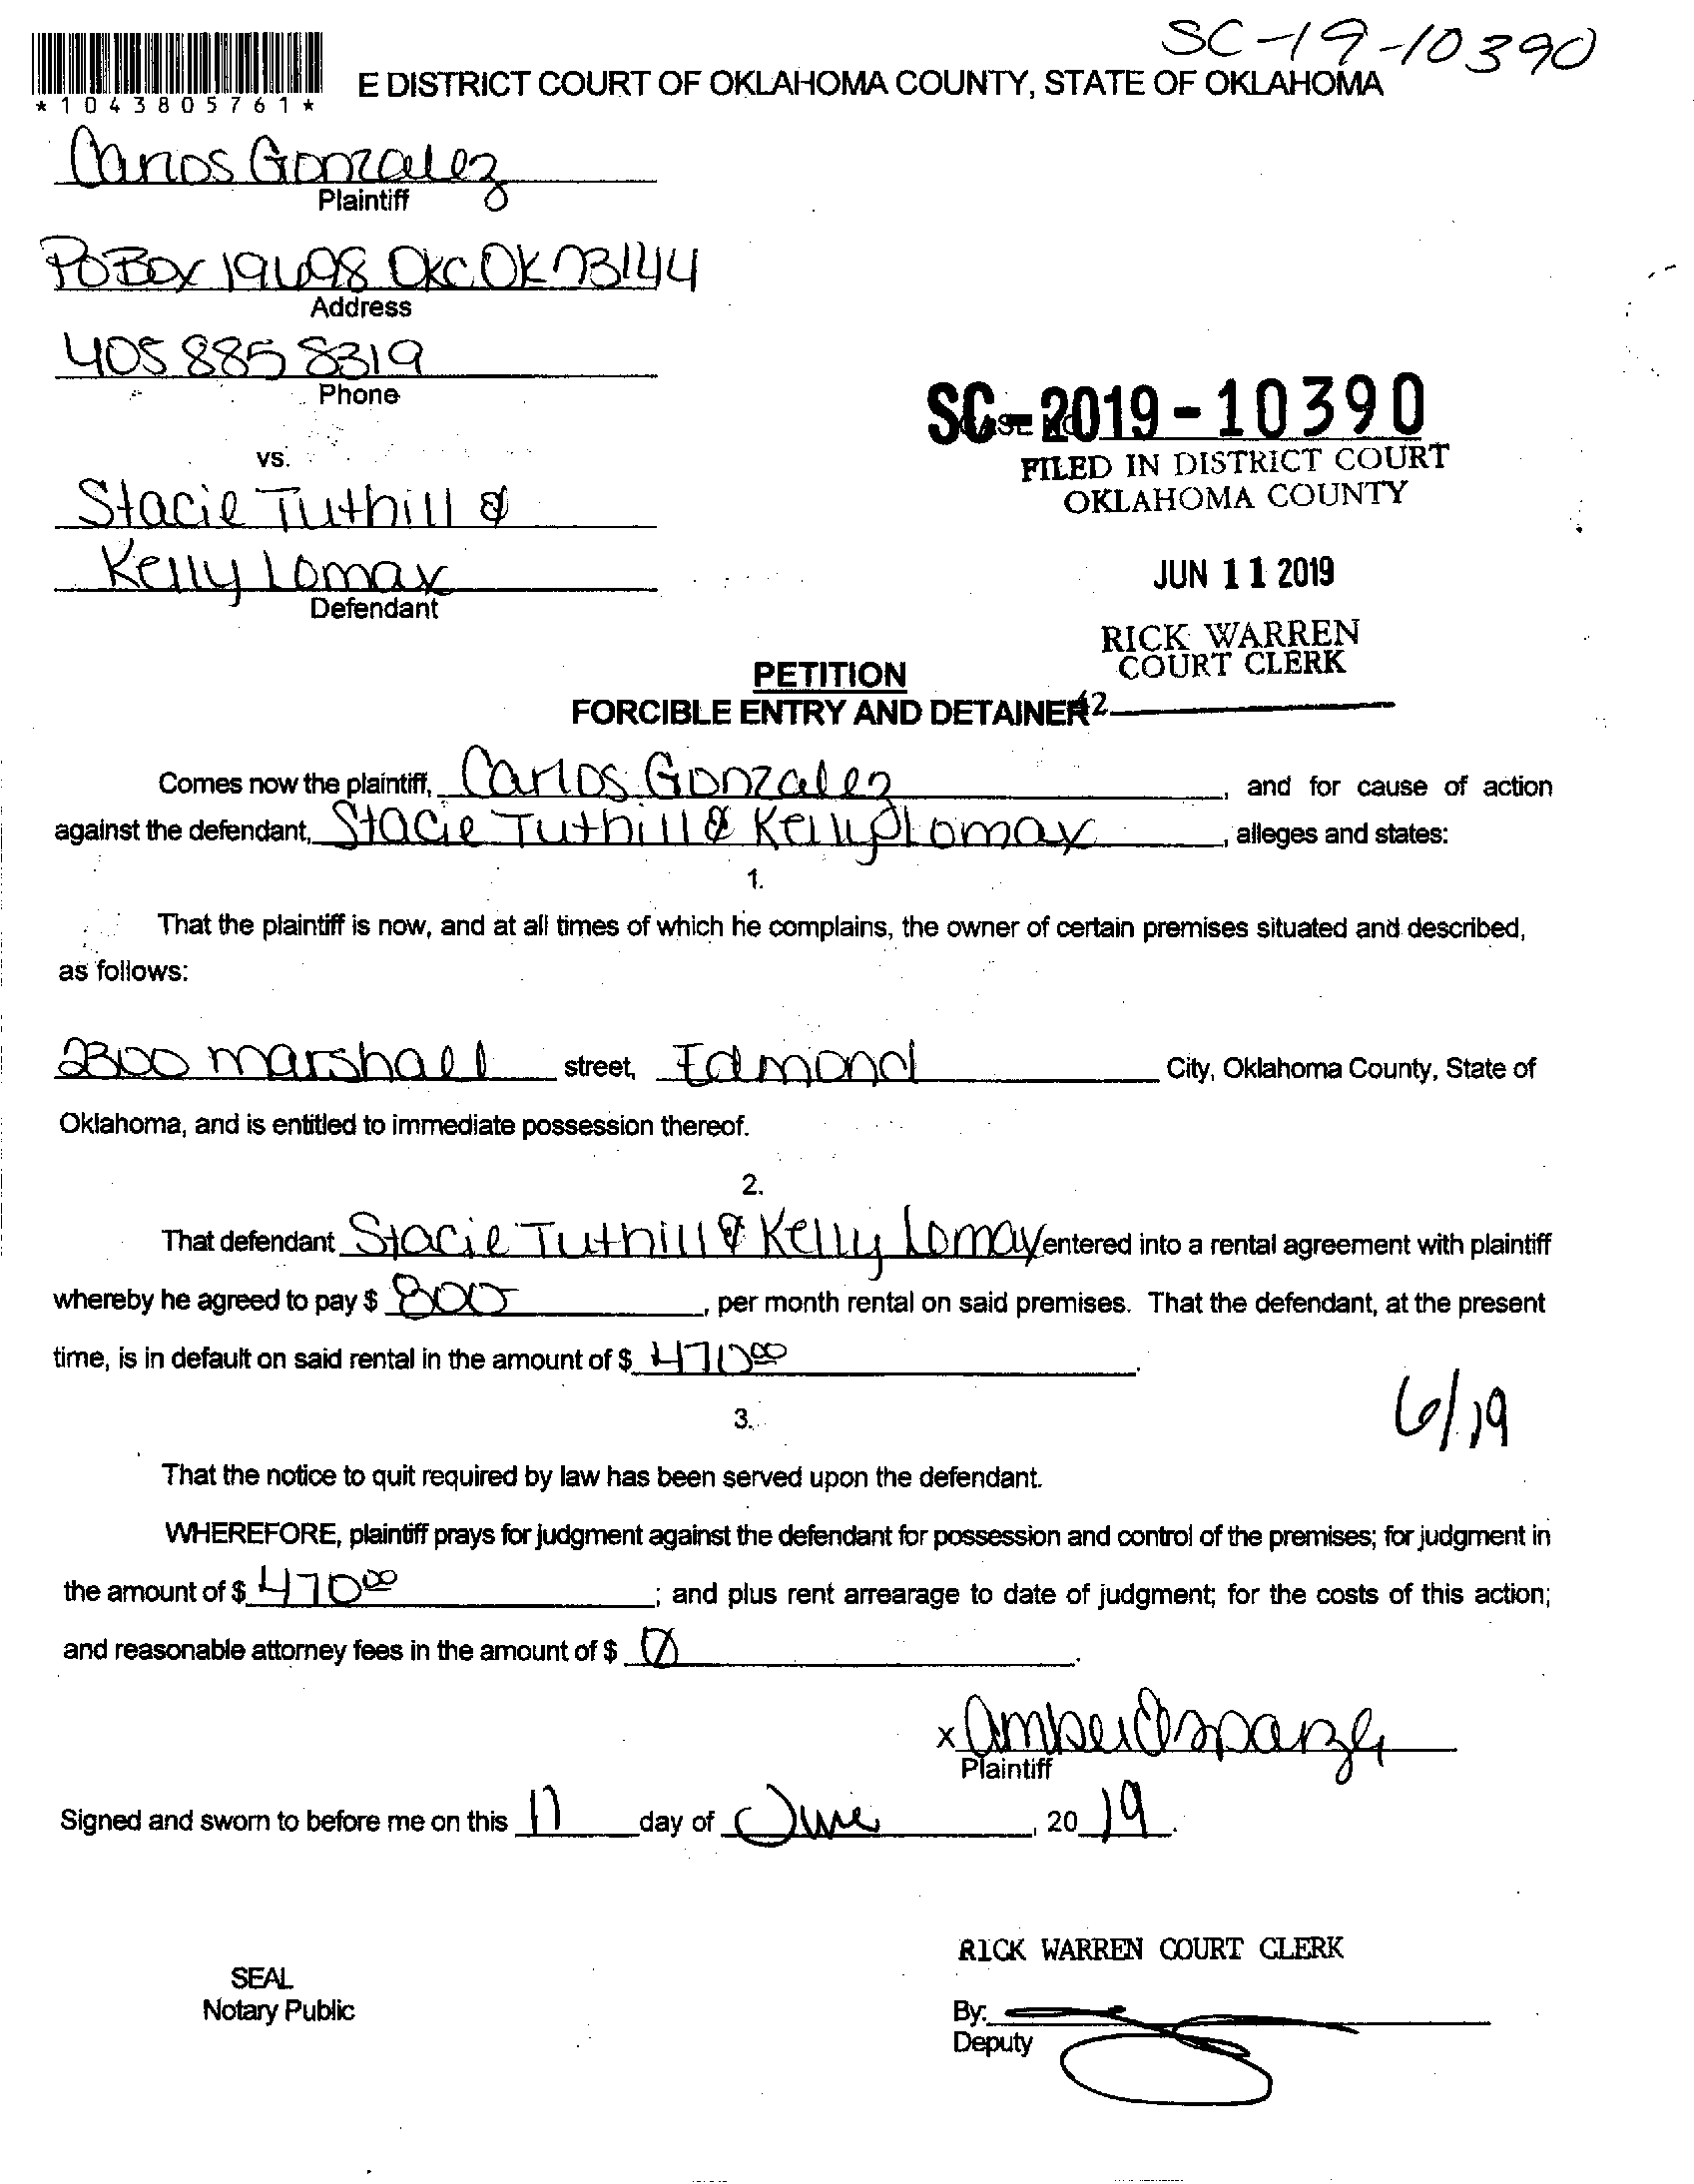 SC-19-10390
E DISTRICT COURT OF OKLAHOMA COUNTY, STATE OF OKLAHOMA
*1043805761*
Carlos Gonzalez
Plaintiff
PO Box 19698 OKC OK 73144
Address
405 885 8319
Phone
SC-2019-10390
FILED IN DISTRICT COURT
OKLAHOMA COUNTY
vs.
Stacie Tuthill &
Kelly Lomax
Defendant
JUN 11 2019
RICK WARREN
COURT CLERK
PETITION
FORCIBLE ENTRY AND DETAINER
42
Comes now the plaintiff, Carlos Gonzalez, and for cause of action
against the defendant, Stacie Tuthill & Kelly Lomax, alleges and states:
1.
That the plaintiff is now, and at all times of which he complains, the owner of certain premises situated and described,
as follows:
2300 marshall street, Edmond City, Oklahoma County, State of
Oklahoma, and is entitled to immediate possession thereof.
2.
That defendant Stacie Tuthill & Kelly Lomax entered into a rental agreement with plaintiff
whereby he agreed to pay $ 800, per month rental on said premises. That the defendant, at the present
time, is in default on said rental in the amount of $ 470 00.
6/19
3.
That the notice to quit required by law has been served upon the defendant.
WHEREFORE, plaintiff prays for judgment against the defendant for possession and control of the premises; for judgment in
the amount of $ 470 00; and plus rent arrearage to date of judgment; for the costs of this action;
and reasonable attorney fees in the amount of $ 0.
x Amber Esparza
Plaintiff
Signed and sworn to before me on this 11 day of June, 20 19.
RICK WARREN COURT CLERK
SEAL
Notary Public
By:
Deputy